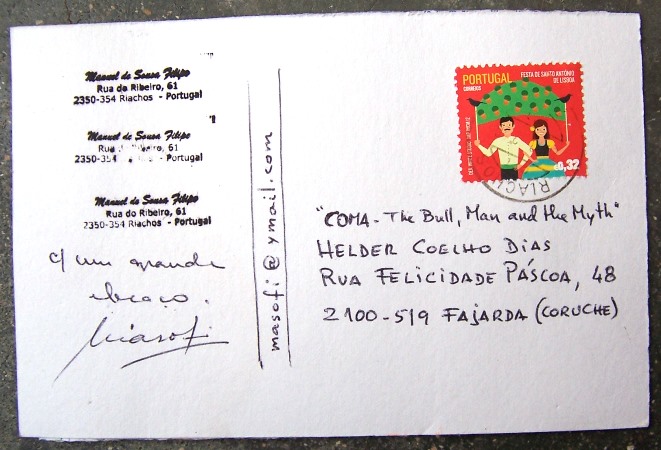 Manuel de Sousa Filipe
Rua do Ribeiro, 61
2350-354 Riachos - Portugal
Manuel de Sousa Filipe
Rua 61
2350-354 - Portugal
Manuel de Sousa Filipe
Rua do Ribeiro, 61
2350-354 Riachos - Portugal
c/ um grande
abraço.
Masofi
masofi@ymail.com
PORTUGAL
CORREIOS
FESTA DE SANTO ANTÓNIO
DE LISBOA
0,32
RIACHOS
"COMA - The Bull, Man and the Myth"
HELDER COELHO DIAS
RUA FELICIDADE PÁSCOA, 48
2100-519 FAJARDA (CORUCHE)